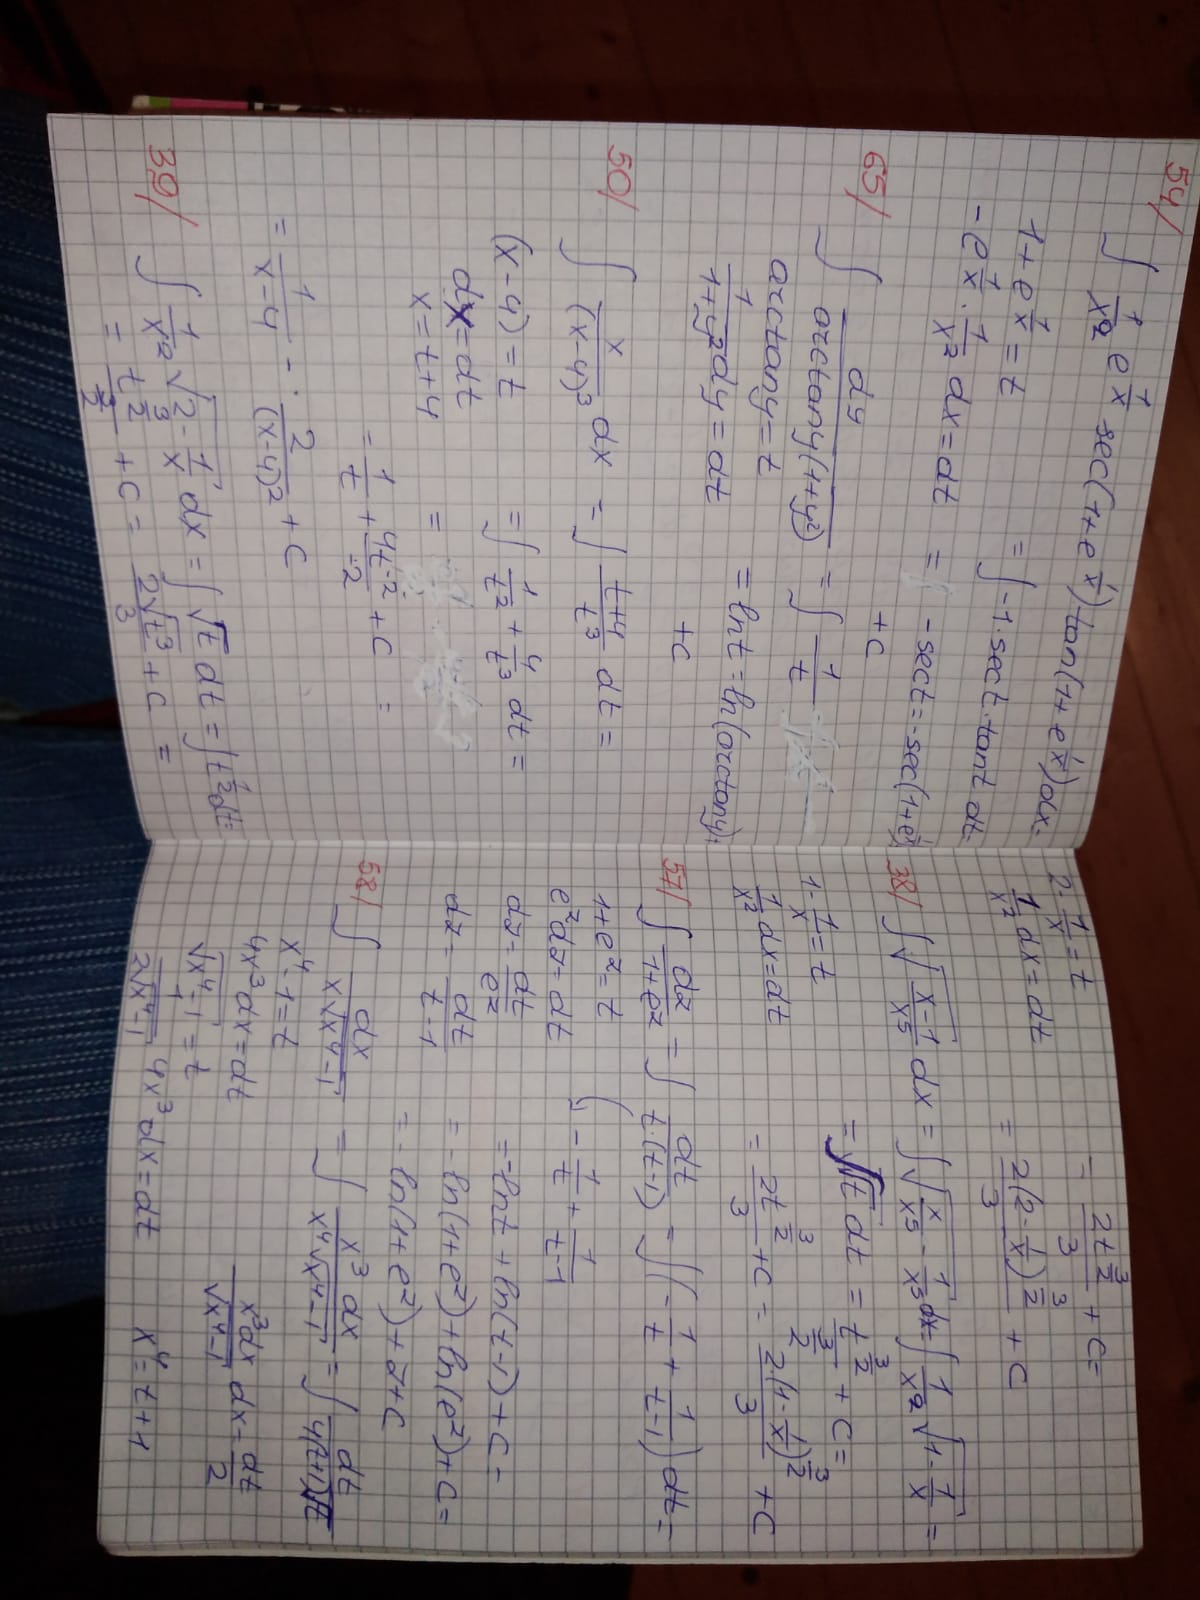 54/
∫ 1/x² e^(1/x) sec(1+e^(1/x)) tan(1+e^(1/x)) dx =
1+e^(1/x) = t
= ∫ -1·sec t·tan t dt =
-e^(1/x) · 1/x² dx = dt
= -sec t = -sec(1+e^(1/x))
+C
65/
∫ dy/(arctan y(1+y²)) = ∫ 1/t
arctan y = t
1/(1+y²) dy = dt
= ln t = ln(arctan y) +
+C
50/
∫ x/(x-4)³ dx = ∫ (t+4)/t³ dt =
(x-4) = t
= ∫ 1/t² + 4/t³ dt =
dx = dt
x = t+4
=
= 1/t + 4t^(-2)/-2 + C =
= 1/(x-4) - 2/(x-4)² + C
39/
∫ 1/x² √(2-1/x) dx = ∫ √t dt = ∫ t^(1/2) dt =
= t^(3/2)/(3/2) + C = 2√t³/3 + C =
2-1/x = t
= 2t^(3/2)/3 + C =
1/x² dx = dt
= 2(2-1/x)^(3/2)/3 + C
38/ ∫ √((x-1)/x⁵) dx = ∫ √(x/x⁵ - 1/x⁵) dx = ∫ 1/x² √(1-1/x) =
= ∫ √t dt = t^(3/2)/(3/2) + C =
1-1/x = t
1/x² dx = dt
= 2t^(3/2)/3 + C = 2·(1-1/x)^(3/2)/3 + C
57/ ∫ dz/(1+e^z) = ∫ dt/(t·(t-1)) = ∫ (-1/t + 1/(t-1)) dt =
1+e^z = t
-1/t + 1/(t-1)
e^z dz = dt
dz = dt/e^z
= -ln t + ln(t-1) + C =
dz = dt/(t-1)
= -ln(1+e^z) + ln(e^z) + C =
= -ln(1+e^z) + z + C
58/ ∫ dx/(x√(x⁴-1)) = ∫ x³ dx/(x⁴√(x⁴-1)) = ∫ dt/(4(t+1)√t)
x⁴-1 = t
4x³ dx = dt
x³dx/√(x⁴-1) dx = dt/2
√(x⁴-1) = t
1/(2√(x⁴-1)) 4x³ dx = dt
x⁴ = t+1